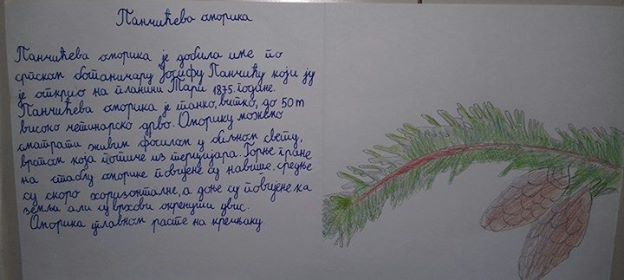 Панчићева оморика
Панчићева оморика је добила име по
српском ботаничару Јосифу Панчићу који ју
је открио на планини Тари 1875. године.
Панчићева оморика је танко, витко, до 50m
високо четинарско дрво. Оморику можемо
сматрати живим фосилом у биљном свету,
врстом која потиче из терцијара. Горње гране
на стаблу оморике повијене су навише, средње
су скоро хоризонталне, а доње су повијене ка
земљи али су врхови окренути
Оморика главном расте на кречњаку